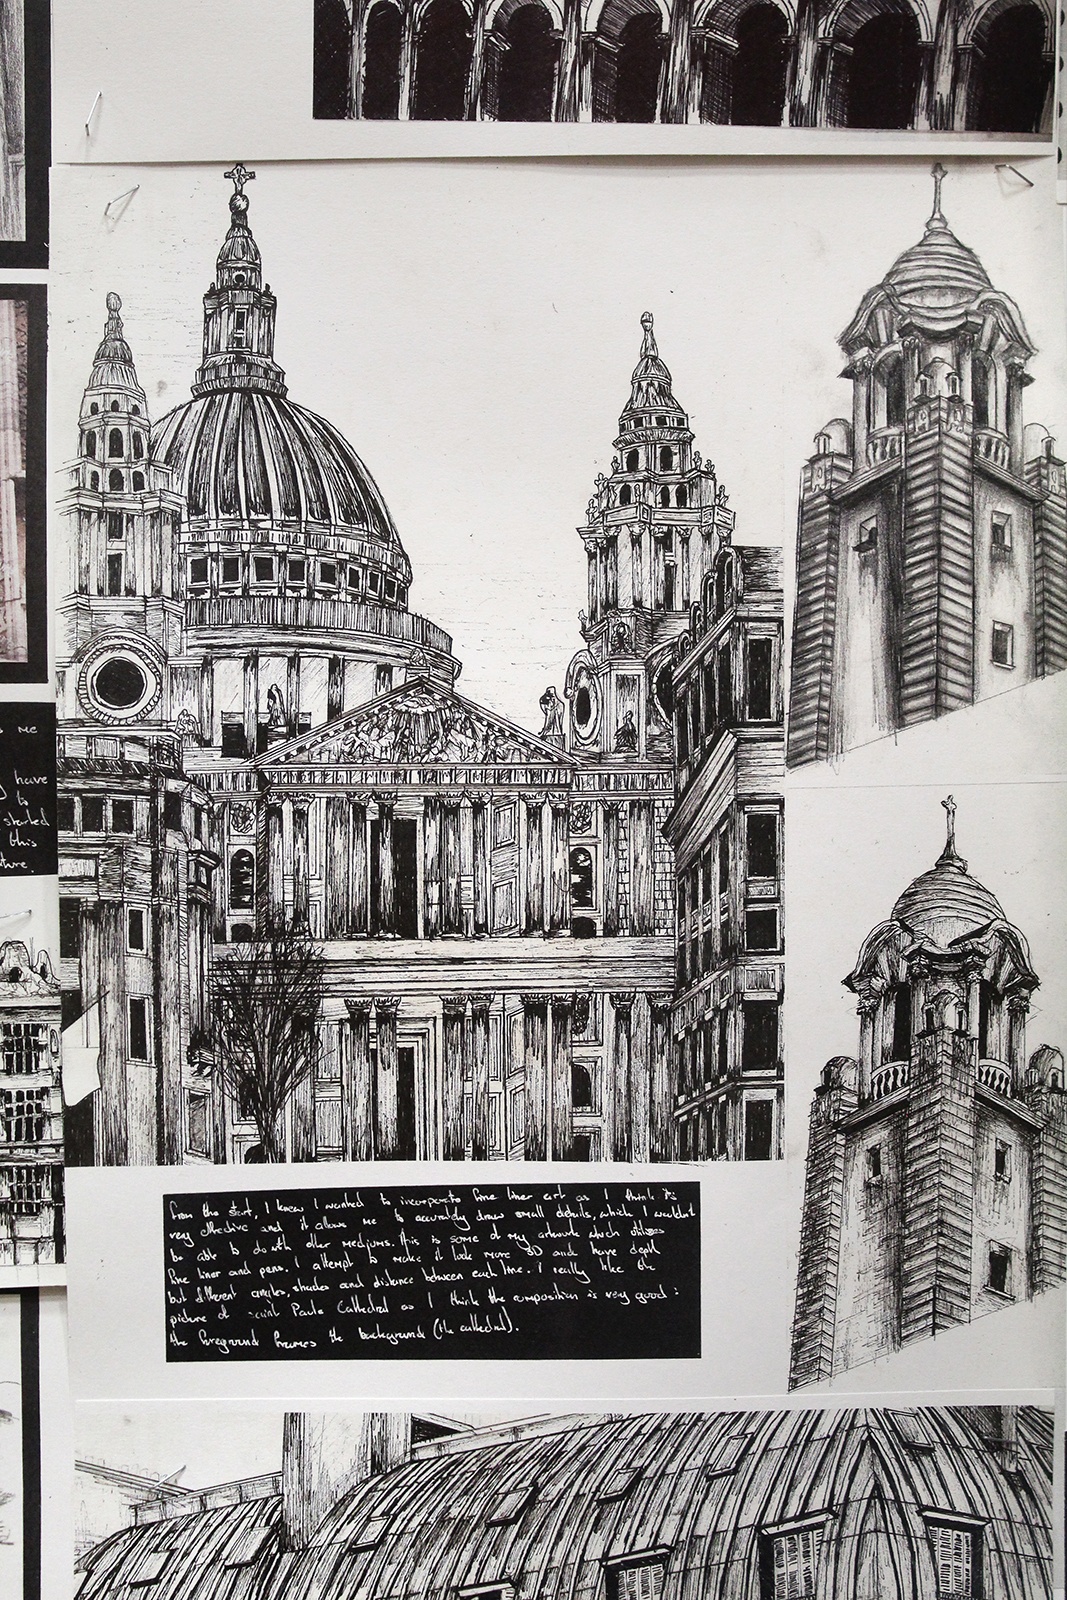 s me
have
to
started
this
ture.
from the start, I knew I wanted to incorporate fine liner art as I think its
very effective and it allows me to accurately draw small details, which I wouldnt
be able to do with other mediums. This is some of my artwork which utilises
fine liner and pens. I attempt to make it look more 3D and have depth
but different angles, shades and distance between each line. I really like the
picture of saint Pauls Cathedral as I think the composition is very good :
the foreground frames the background (the cathedral).